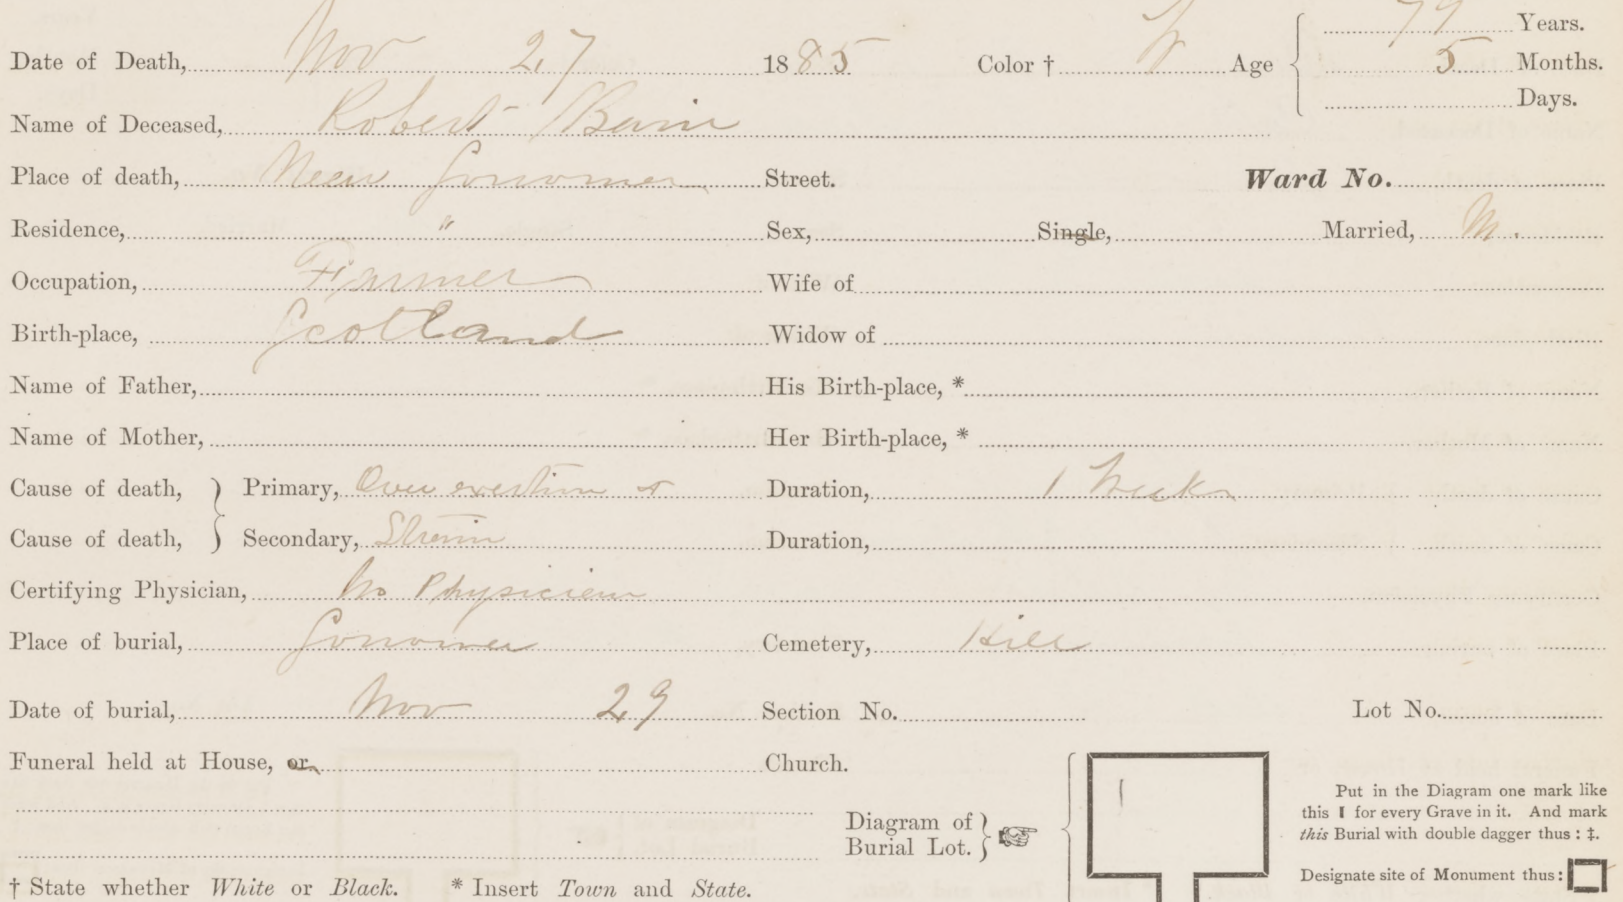 Years.
Date of Death, Nov 27 1885 Color † W Age 5 Months.
Days.
Name of Deceased, Robert Bain
Place of death, Near Street. Ward No.
Residence, " Sex, Single, Married, M.
Occupation, Farmer Wife of
Birth-place, Scotland Widow of
Name of Father, His Birth-place, *
Name of Mother, Her Birth-place, *
Cause of death, Primary, Over exertion & Duration, 1 Week
Cause of death, Secondary, Strain Duration,
Certifying Physician, No Physician
Place of burial, Cemetery, Hill
Date of burial, Nov 29 Section No. Lot No.
Funeral held at House, or Church.
Diagram of
Burial Lot.
Put in the Diagram one mark like
this I for every Grave in it. And mark
this Burial with double dagger thus : ‡.
Designate site of Monument thus :
† State whether White or Black. * Insert Town and State.